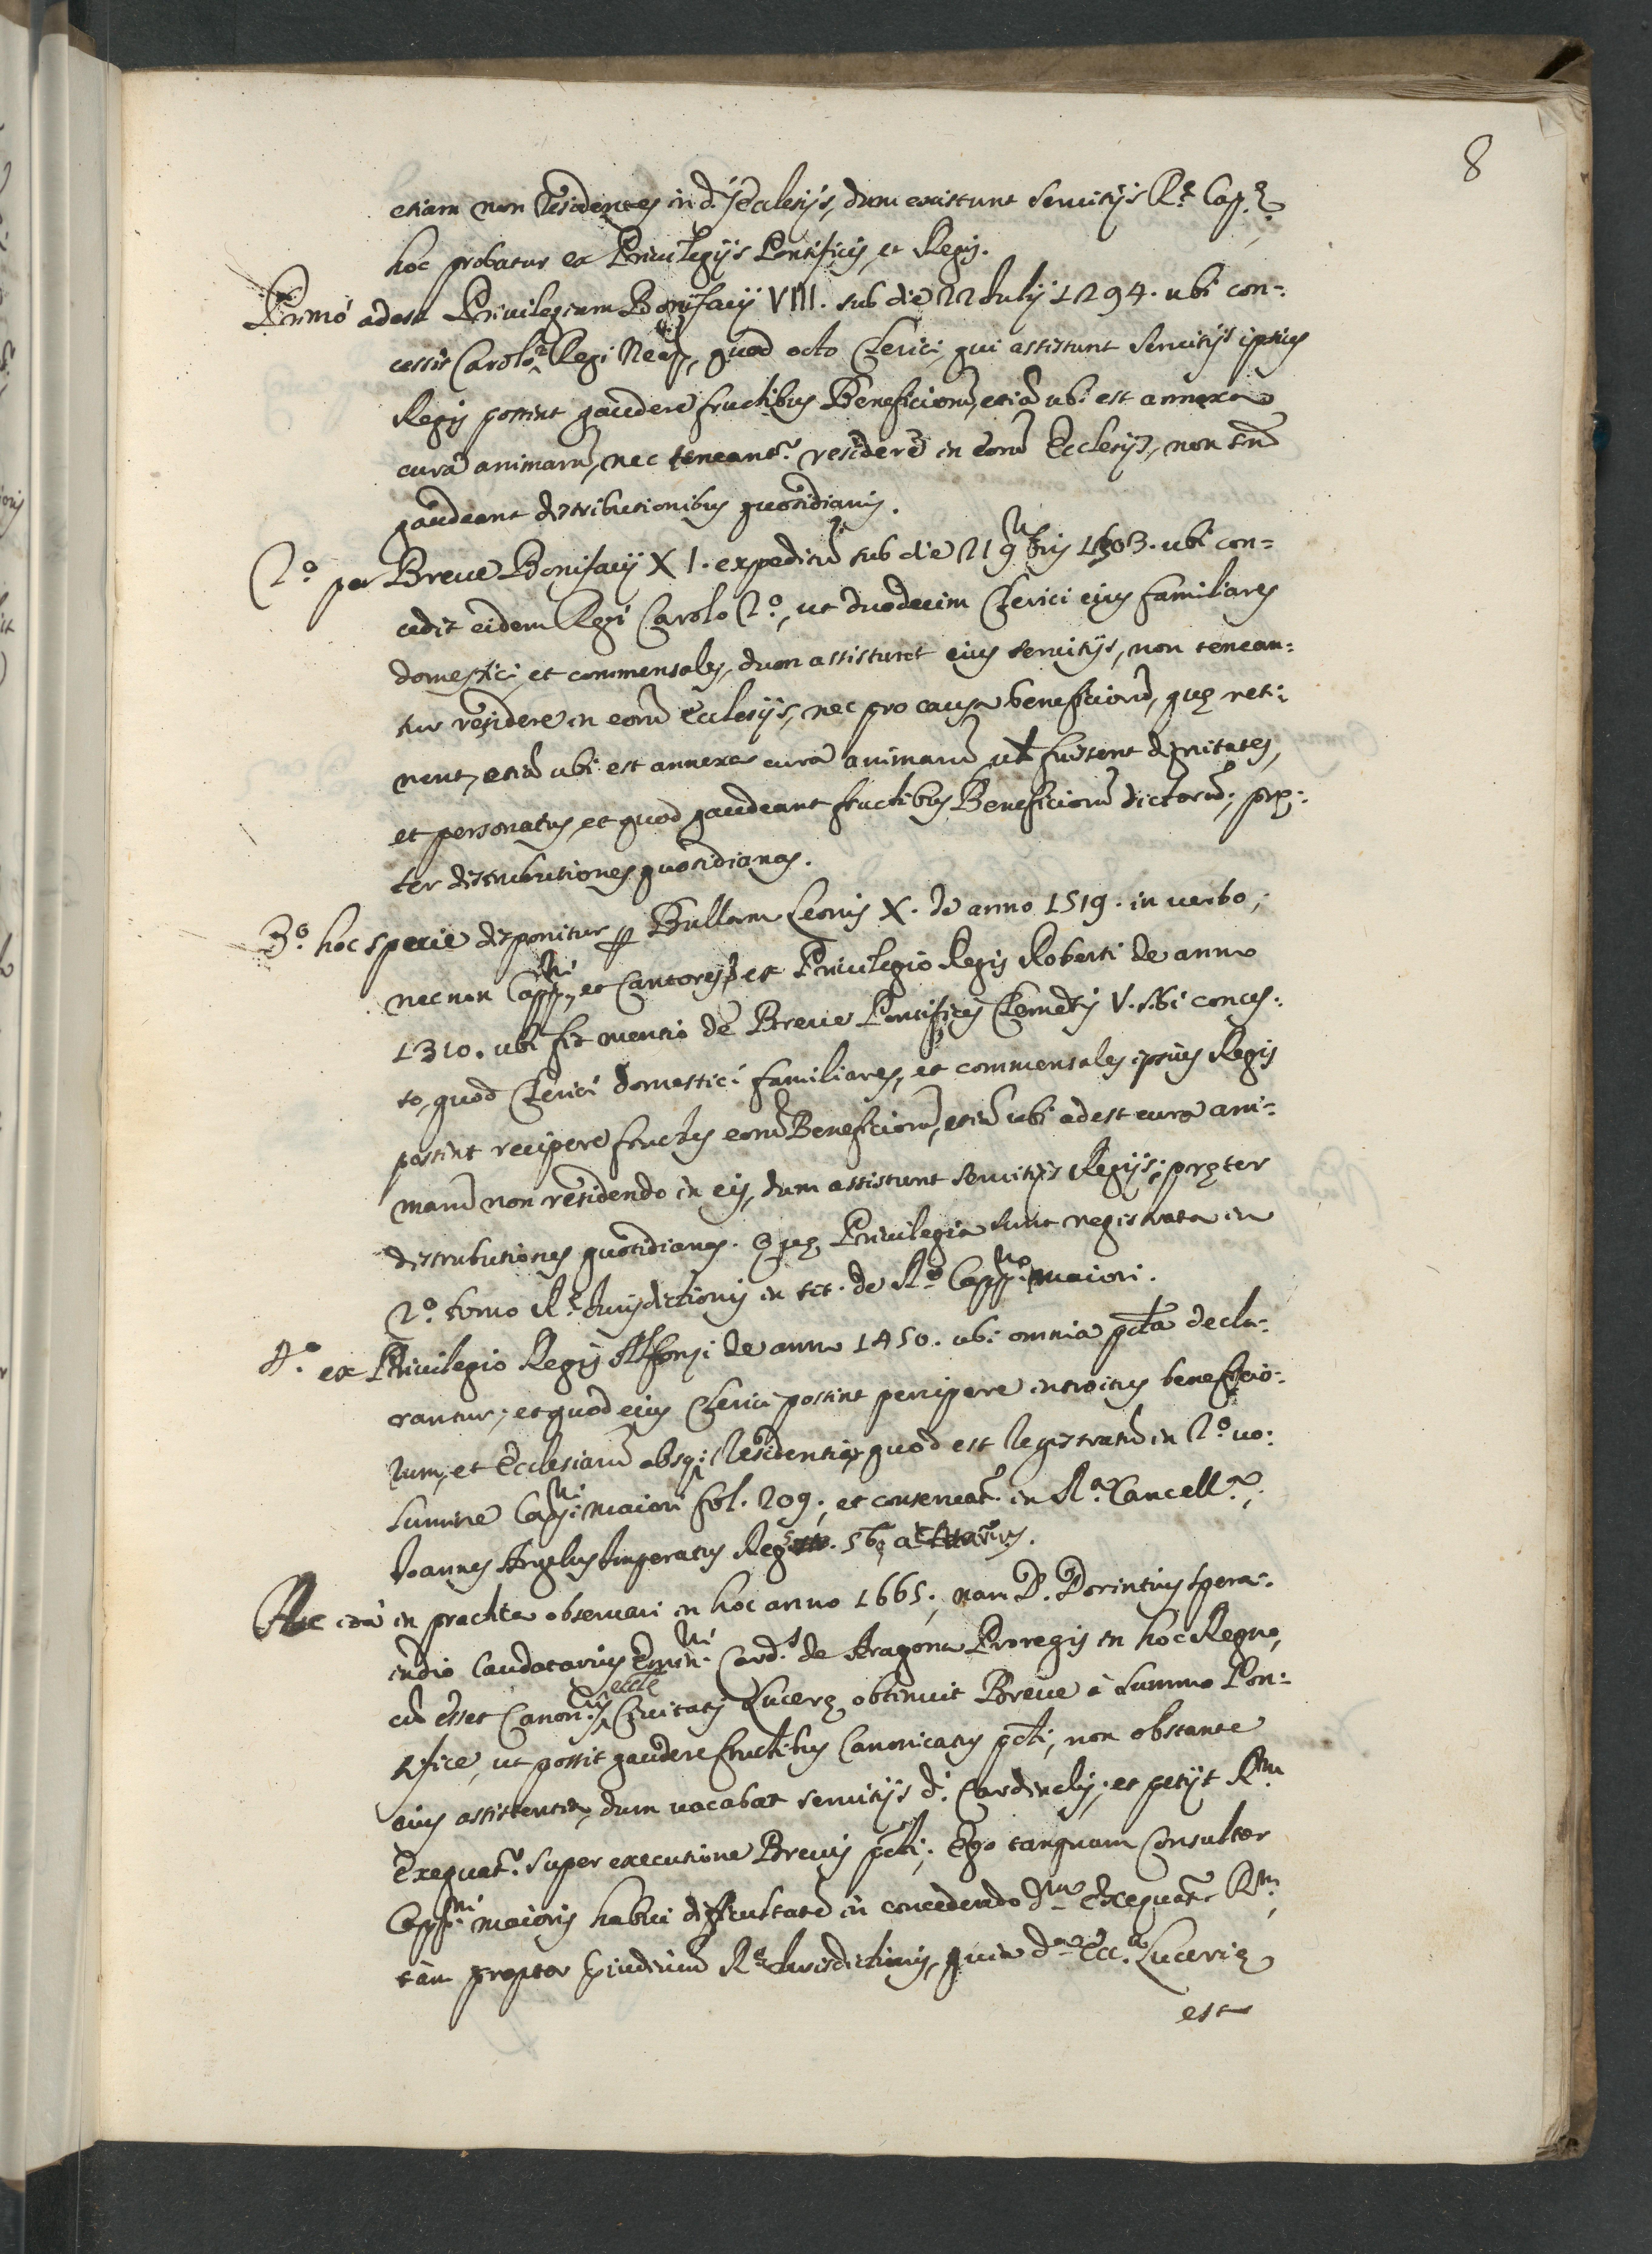 8
etiam non residentes in d.^s Ecclesijs, dum existunt servitijs R.^e Cap.^e
hoc probatur ex Privilegijs Pontificis, et Regis.
Primò adest Privilegium Bonifacij VIII. sub die 22 Julij 1294. ubi con=
cessit Carolo 2.^o Regi Neap., quod octo Clerici, qui assistunt servitijs ipsius
Regis possint gaudere fructibus Beneficiorũ, etiã ubi est annexa
cura animarũ, nec teneant.^r residere in eorũ Ecclesijs, non tñ
gaudeant distributionibus quotidianis.
2.^o per Breve Bonifacij XI. expeditũ sub die 21 9.^bris 1303. ubi con=
cedit eidem Regi Carolo 2.^o, ut duodecim Clerici eius familiares
domestici, et commensales, dum assisteret eius servitijs, non tenean=
tur residere in eorũ Ecclesijs, nec pro causa beneficiorũ, quę reti=
nent, etiã ubi est annexa cura animarũ ut fuissent dignitates,
et personatus, et quod gaudeant fructibus Beneficiorũ dictorũ; pręt=
ter distributiones quotidianas.
3.^o hoc specie disponitur p Bullam Leonis X. de anno 1519. in verbo;
nec non Capp.^ni, et Cantores, et Privilegio Regis Roberti de anno
1310. ubi fit mentio de Breve Pontificis Clemẽtis V. sibi conces=
so, quod Clerici domestici familiares, et commensales ipsius Regis
possint recipere fructus eorũ Beneficiorũ, etiã ubi adest cura ani=
marũ non residendo in eis, dum assistunt servitijs Regijs; pręter
distributiones quotidianas. Quę Privilegia sunt registrata in
2.^o tomo R.^e Jurisdictionis in tit. de R.^o Capp.^no maiori.
4.^o ex Privilegio Regis Alfonsi de anno 1450. ubi omnia pcta decla=
rantur; et quod eius Clerici possint percipere introitus beneficio=
rum, et Ecclesiarũ absq; Residentia, quod est registratũ in 2.^o vo=
lumine Capp.^ni maiori fol. 209; et conservat.^r in R.^a Cancell.^a,
Joannes Angelus Imperatus Reg.
in practica observari in hoc anno 1665; nam D. Dorintius Spera=
indio Caudatarius Emin.^mi Card.^s de Aragona Proregis in hoc Regno,
cũ esset Canon.^cus eccle Civitatis Lucerę obtinuit Breve à Summo Pon=
tifice, ut possit gaudere fructibus Canonicatus pcti; non obstante
eius assistentia, dum vacabat servitijs d.^i Cardinalis; et petijt R.^m
Exequat.^r super executione Brevis pcti; Ego tanquam Consultor
Capp.^ni maioris habui difficultatẽ in concedendo d.^m Exequat.^r R.^m,
tàm propter R.^e Jurisdictionis, quia d.^a Ecc.^a Lucerię
est